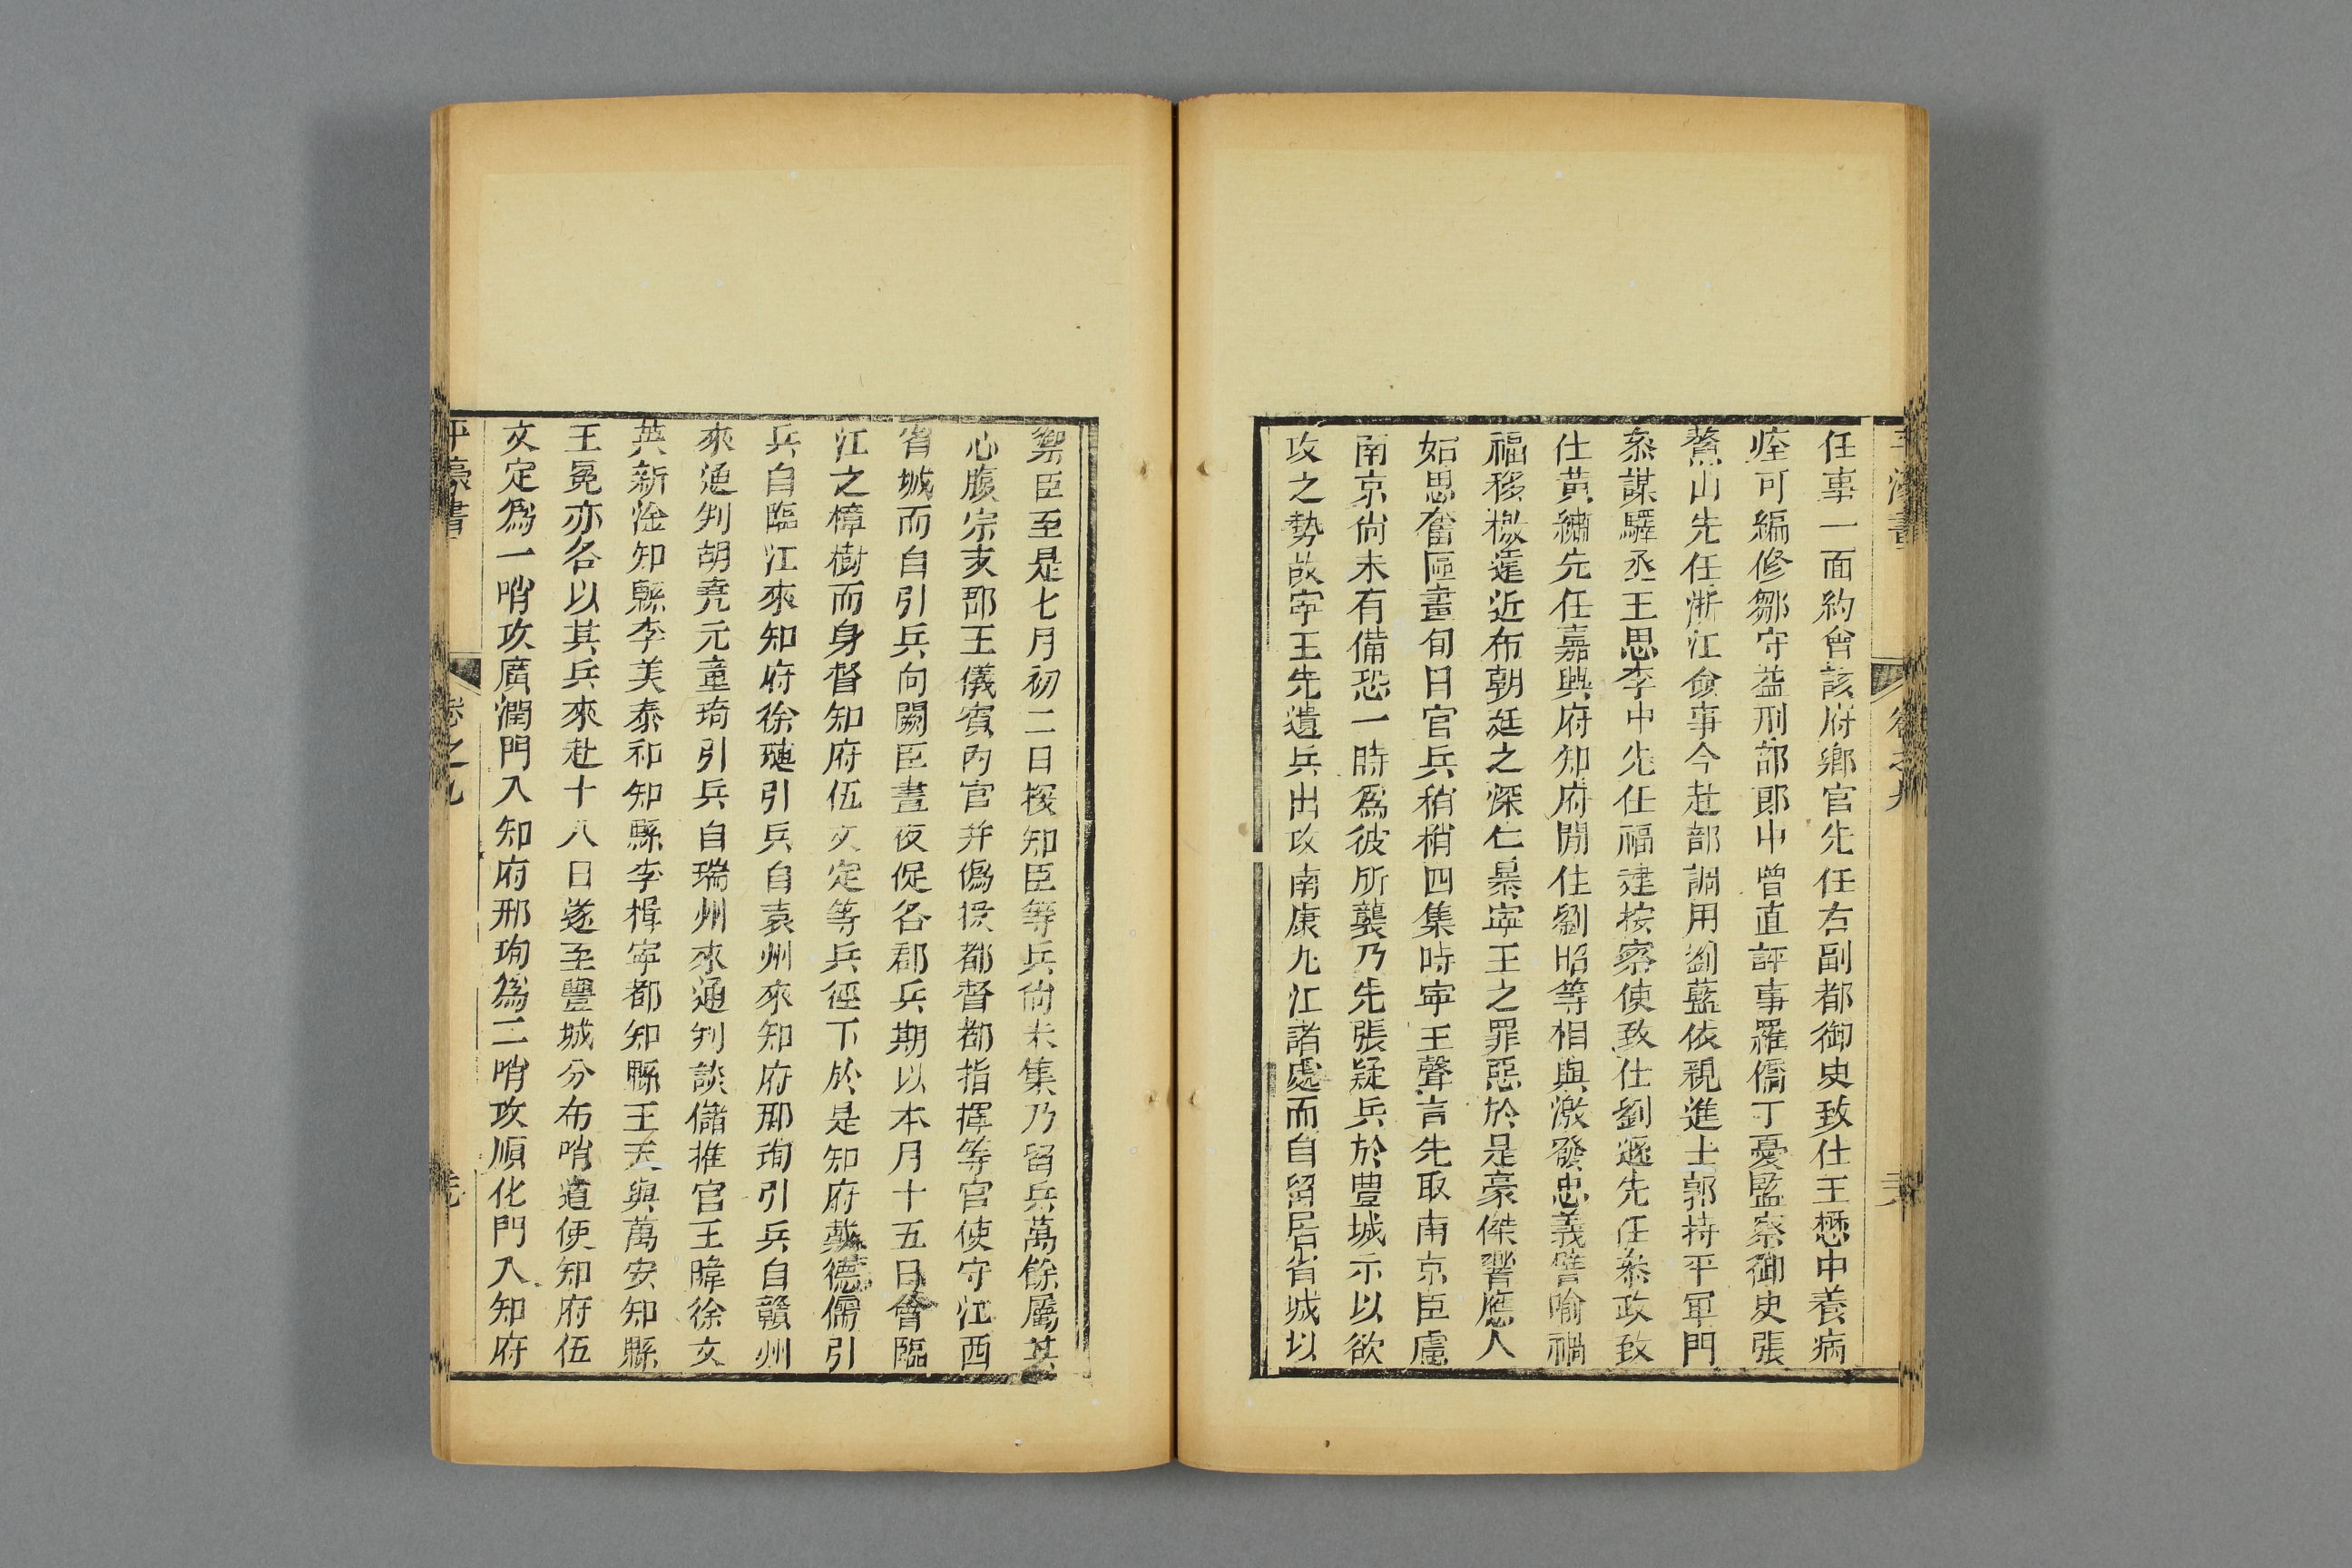 任事一面約會該府鄉官先任右副都御史致仕王懋中養病
痊可編修鄒守益刑部郎中曾直評事羅僑丁憂監察御史張
鰲山先任浙江僉事今赴部調用劉藍依親進士郭持平軍門
叅謀驛丞王思李中先任福建按察使致仕劉遜先任叅政致
仕黃繡先任嘉興府知府閒住劉昭等相與激發忠義譬喻禍
福移檄遠近布朝廷之深仁暴寧王之罪惡於是豪傑響應人
始思奮區畫旬日官兵稍稍四集時寧王聲言先取南京臣慮
南京尙未有備恐一時爲彼所襲乃先張疑兵於豐城示以欲
攻之勢故寧王先遣兵出攻南康九江諸處而自留居省城以
禦臣至是七月初二日探知臣等兵尙未集乃留兵萬餘屬其
心腹宗支郡王儀賓內官并僞授都督都指揮等官使守江西
省城而自引兵向闕臣晝夜促各郡兵期以本月十五日會臨
江之樟樹而身督知府伍文定等兵徑下於是知府戴德孺引
兵自臨江來知府徐璉引兵自袁州來知府邢珣引兵自贛州
來通判胡堯元童琦引兵自瑞州來通判談儲推官王暐徐文
英新淦知縣李美泰和知縣李楫寧都知縣王天與萬安知縣
王冕亦各以其兵來赴十八日遂至豐城分布哨道使知府伍
文定爲一哨攻廣潤門入知府邢珣爲二哨攻順化門入知府
平濠書 卷之九